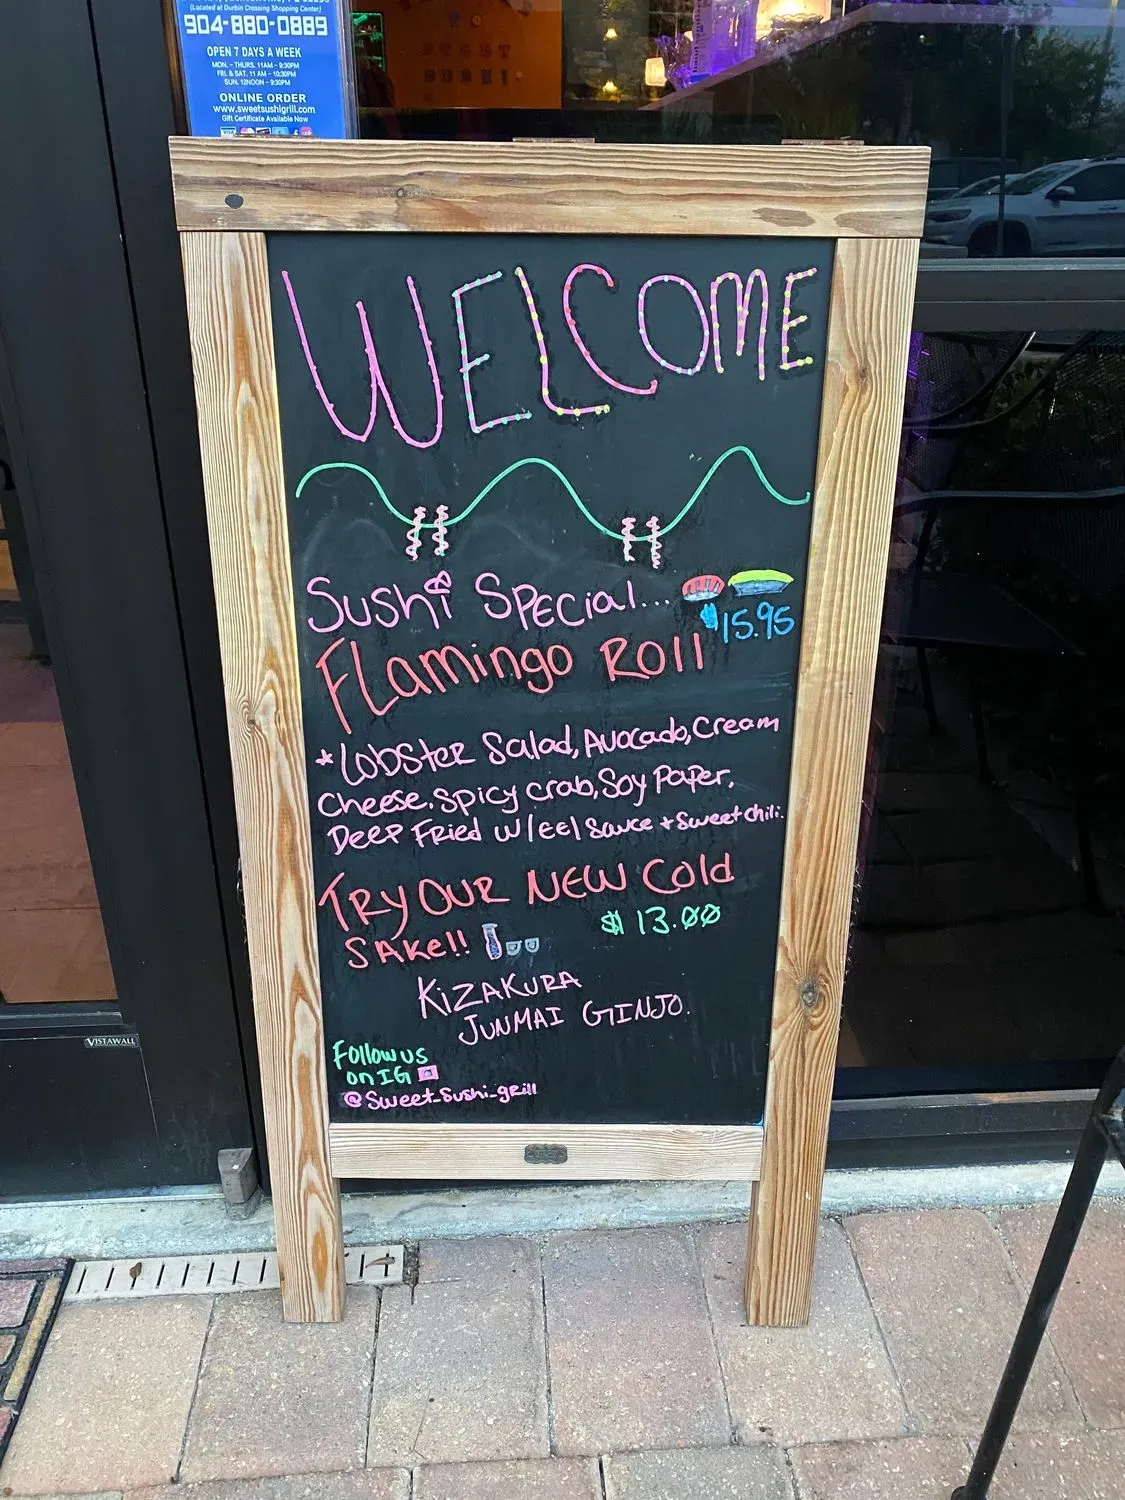 (Located at Durbin Crossing Shopping Center)
904-880-0889
OPEN 7 DAYS A WEEK
MON. - THURS. 11AM - 9:30PM
FRI. & SAT. 11 AM - 10:30PM
SUN. 12NOON - 9:30PM
ONLINE ORDER
www.sweetsushigrill.com
Gift Certificate Available Now
VISA
SWEET
SUSHI
WELCOME
Sushi Special...
$15.95
Flamingo Roll
*Lobster Salad, Avocado, Cream
Cheese. Spicy crab, Soy Paper.
Deep Fried w/eel Sauce + Sweet chili.
TRY OUR NEW Cold
SAKe!! $13.00
KIZAKURA
JUNMAI GINJO.
Follow us
on IG
@Sweet_Sushi_grill
VISTAWALL